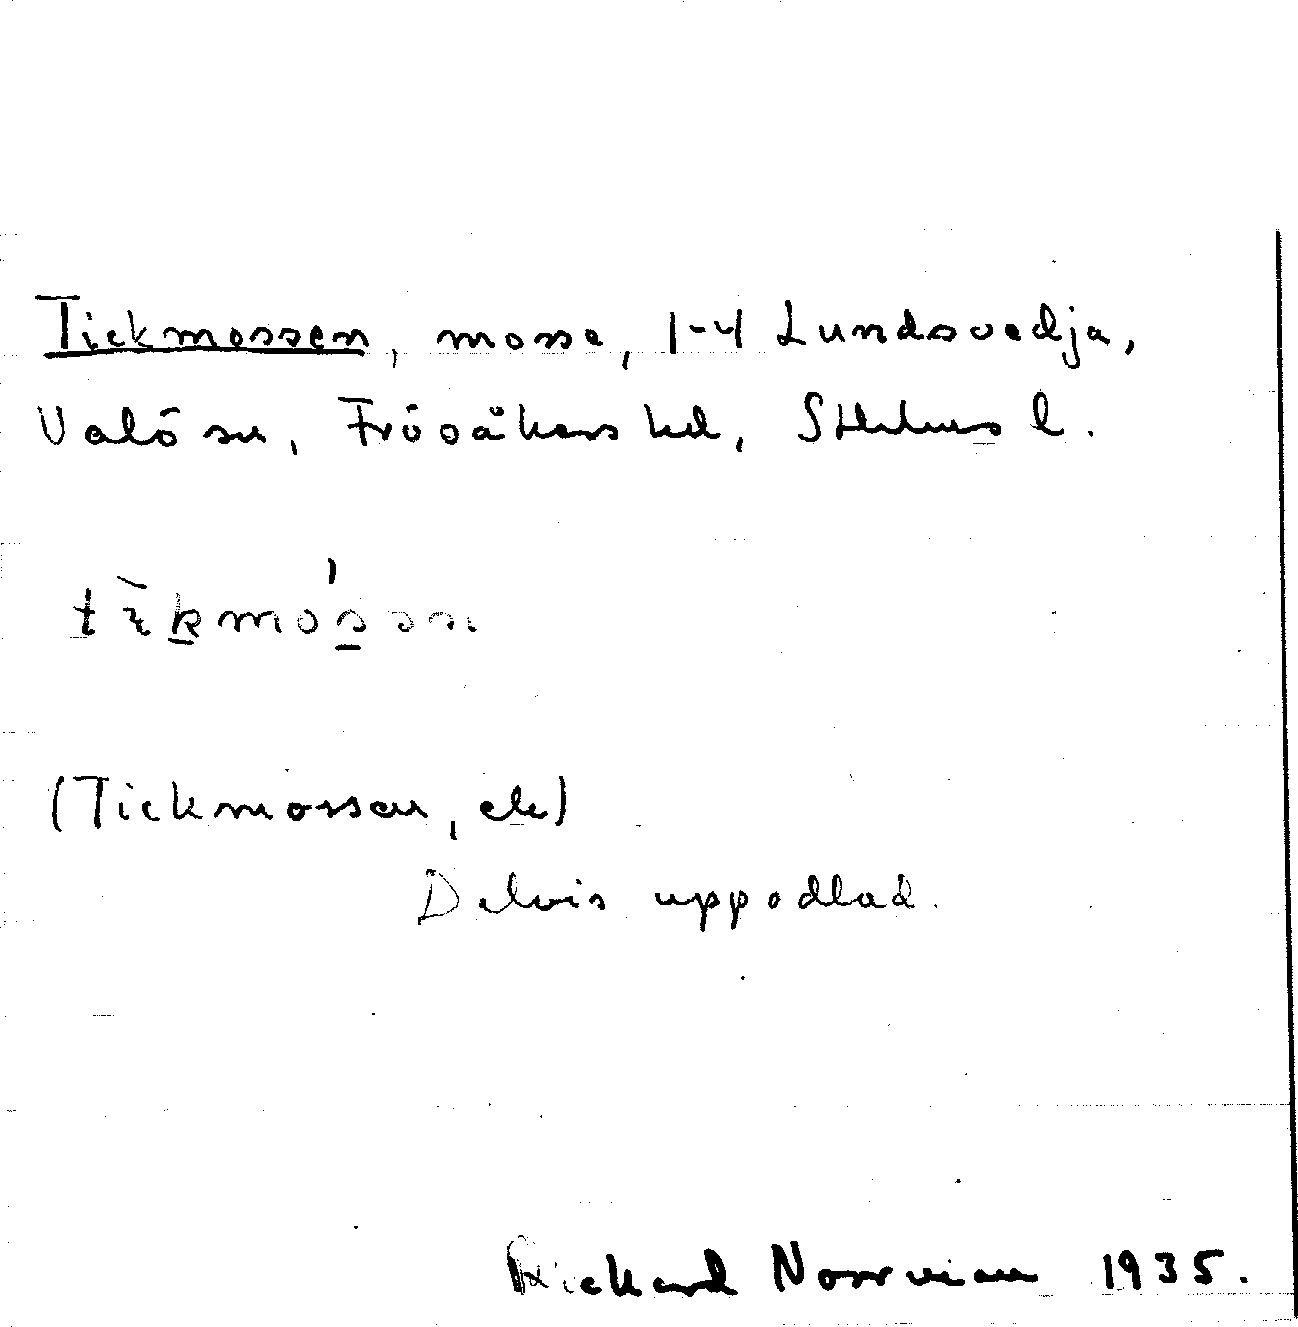 Tickmossen, mosse, 1-4 Lundsvedja,
Valö sn, Frösåkers hd, Sthlms l.
tìkmós̱ən
(Tickmossen, ek)
Delvis uppodlad.
Rickard Norrman 1935.